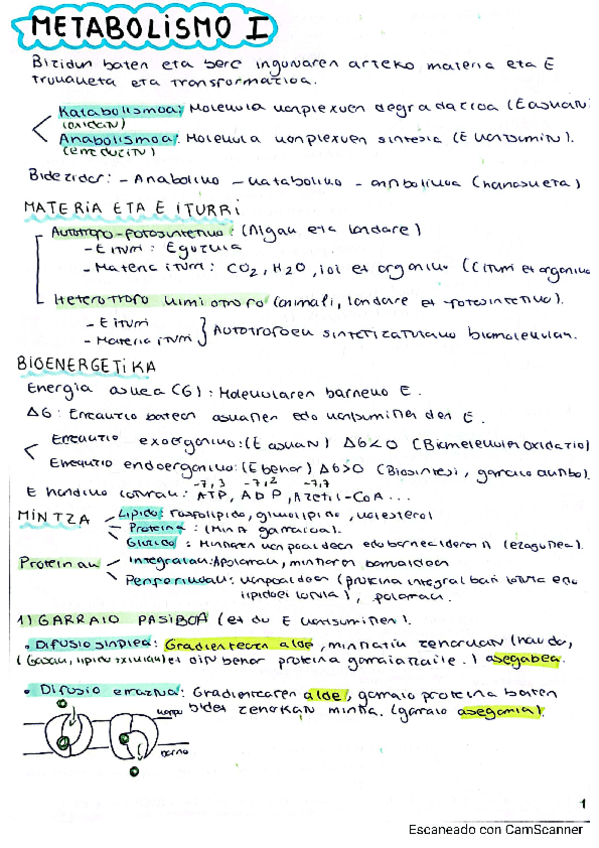 METABOLISMO I
Bizidun baten eta bere ingurunaren arteko materia eta E
trukaketa eta transformazioa.
Katabolismoa: Molekula konplexuen degradazioa (E askatu)
(oxidatu)
Anabolismoa: Molekula konplexuen sintesia (E kontsumitu).
(erreduzitu)
Bidezidor: - Anaboliko - katabolico - anfibolikoa
MATERIA ETA E ITURRI
Autotrofo-fotosintetiko: (Algak eta landare)
- E iturri: Eguzkia
- Materia iturri: CO2, H2O, ioi ez organiko (C iturri ez organiko
Heterotrofo kimiotrofo (animali, landare ez fotosintetiko).
- E iturri
- Materia iturri } Autotrofoek sintetizaturiko biomolekulak.
BIOENERGETIKA
Energia askea (G): Molekularen barneko E.
ΔG: Erreakzio batean askatzen edo kontsumitzen den E.
Erreakzio exoergoniko: (E askatu) ΔG<0 (Biomolekulen oxidatio)
Erreakzio endoergoniko: (E behar) ΔG>0 (Biosintesi, garraio aktibo).
-7,3 -7,2 -7,7
E handiko loturak: ATP, ADP, Azetil-CoA ...
MINTZA Lipido: fosfolipido, glukolipido, kolesterol
Proteina: (Mintz garraioa).
Gluzido: Mintzaren kanpoaldean edo barnealdean (ezaguera).
Proteinak Integralak: Apolarrak, mintzaren barnealdean
Periferikoak: kanpoaldean (proteina integral bati lotuta edo
lipidoei lotuta), polarrak.
1) GARRAIO PASIBOA (ez du E kontsumitzen).
• Difusio sinplea: Gradientearen alde, mintzatik zeharkatu
ez din behar proteina garraiatzaile.) asegabea.
• Difusio erraztua: Gradientearen alde, garraio proteina baten
kanpo bidez zeharkatu mintza. (garraio asegarria).
barne
1
Escaneado con CamScanner